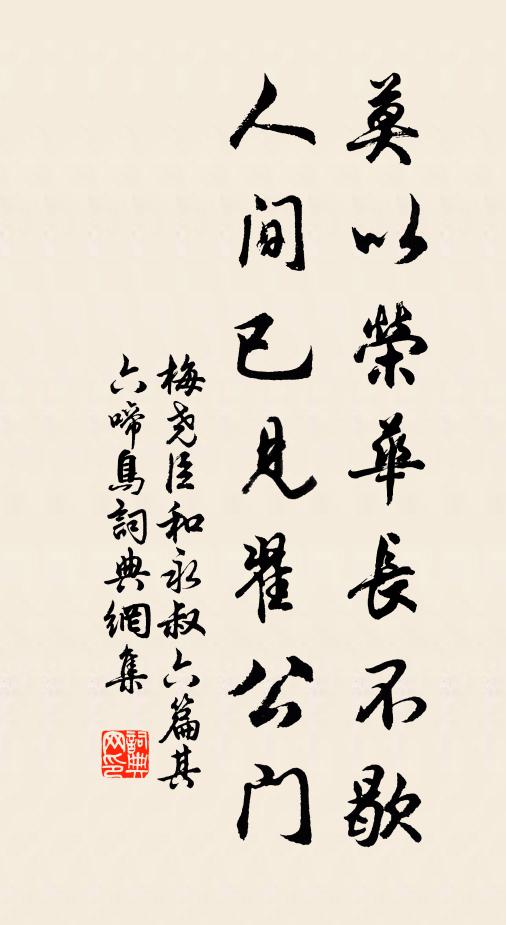 莫以榮華長不歇
人间已見翟公门
梅尧臣和永叔六篇其
六啼鳥詞典網集
詞典
网印